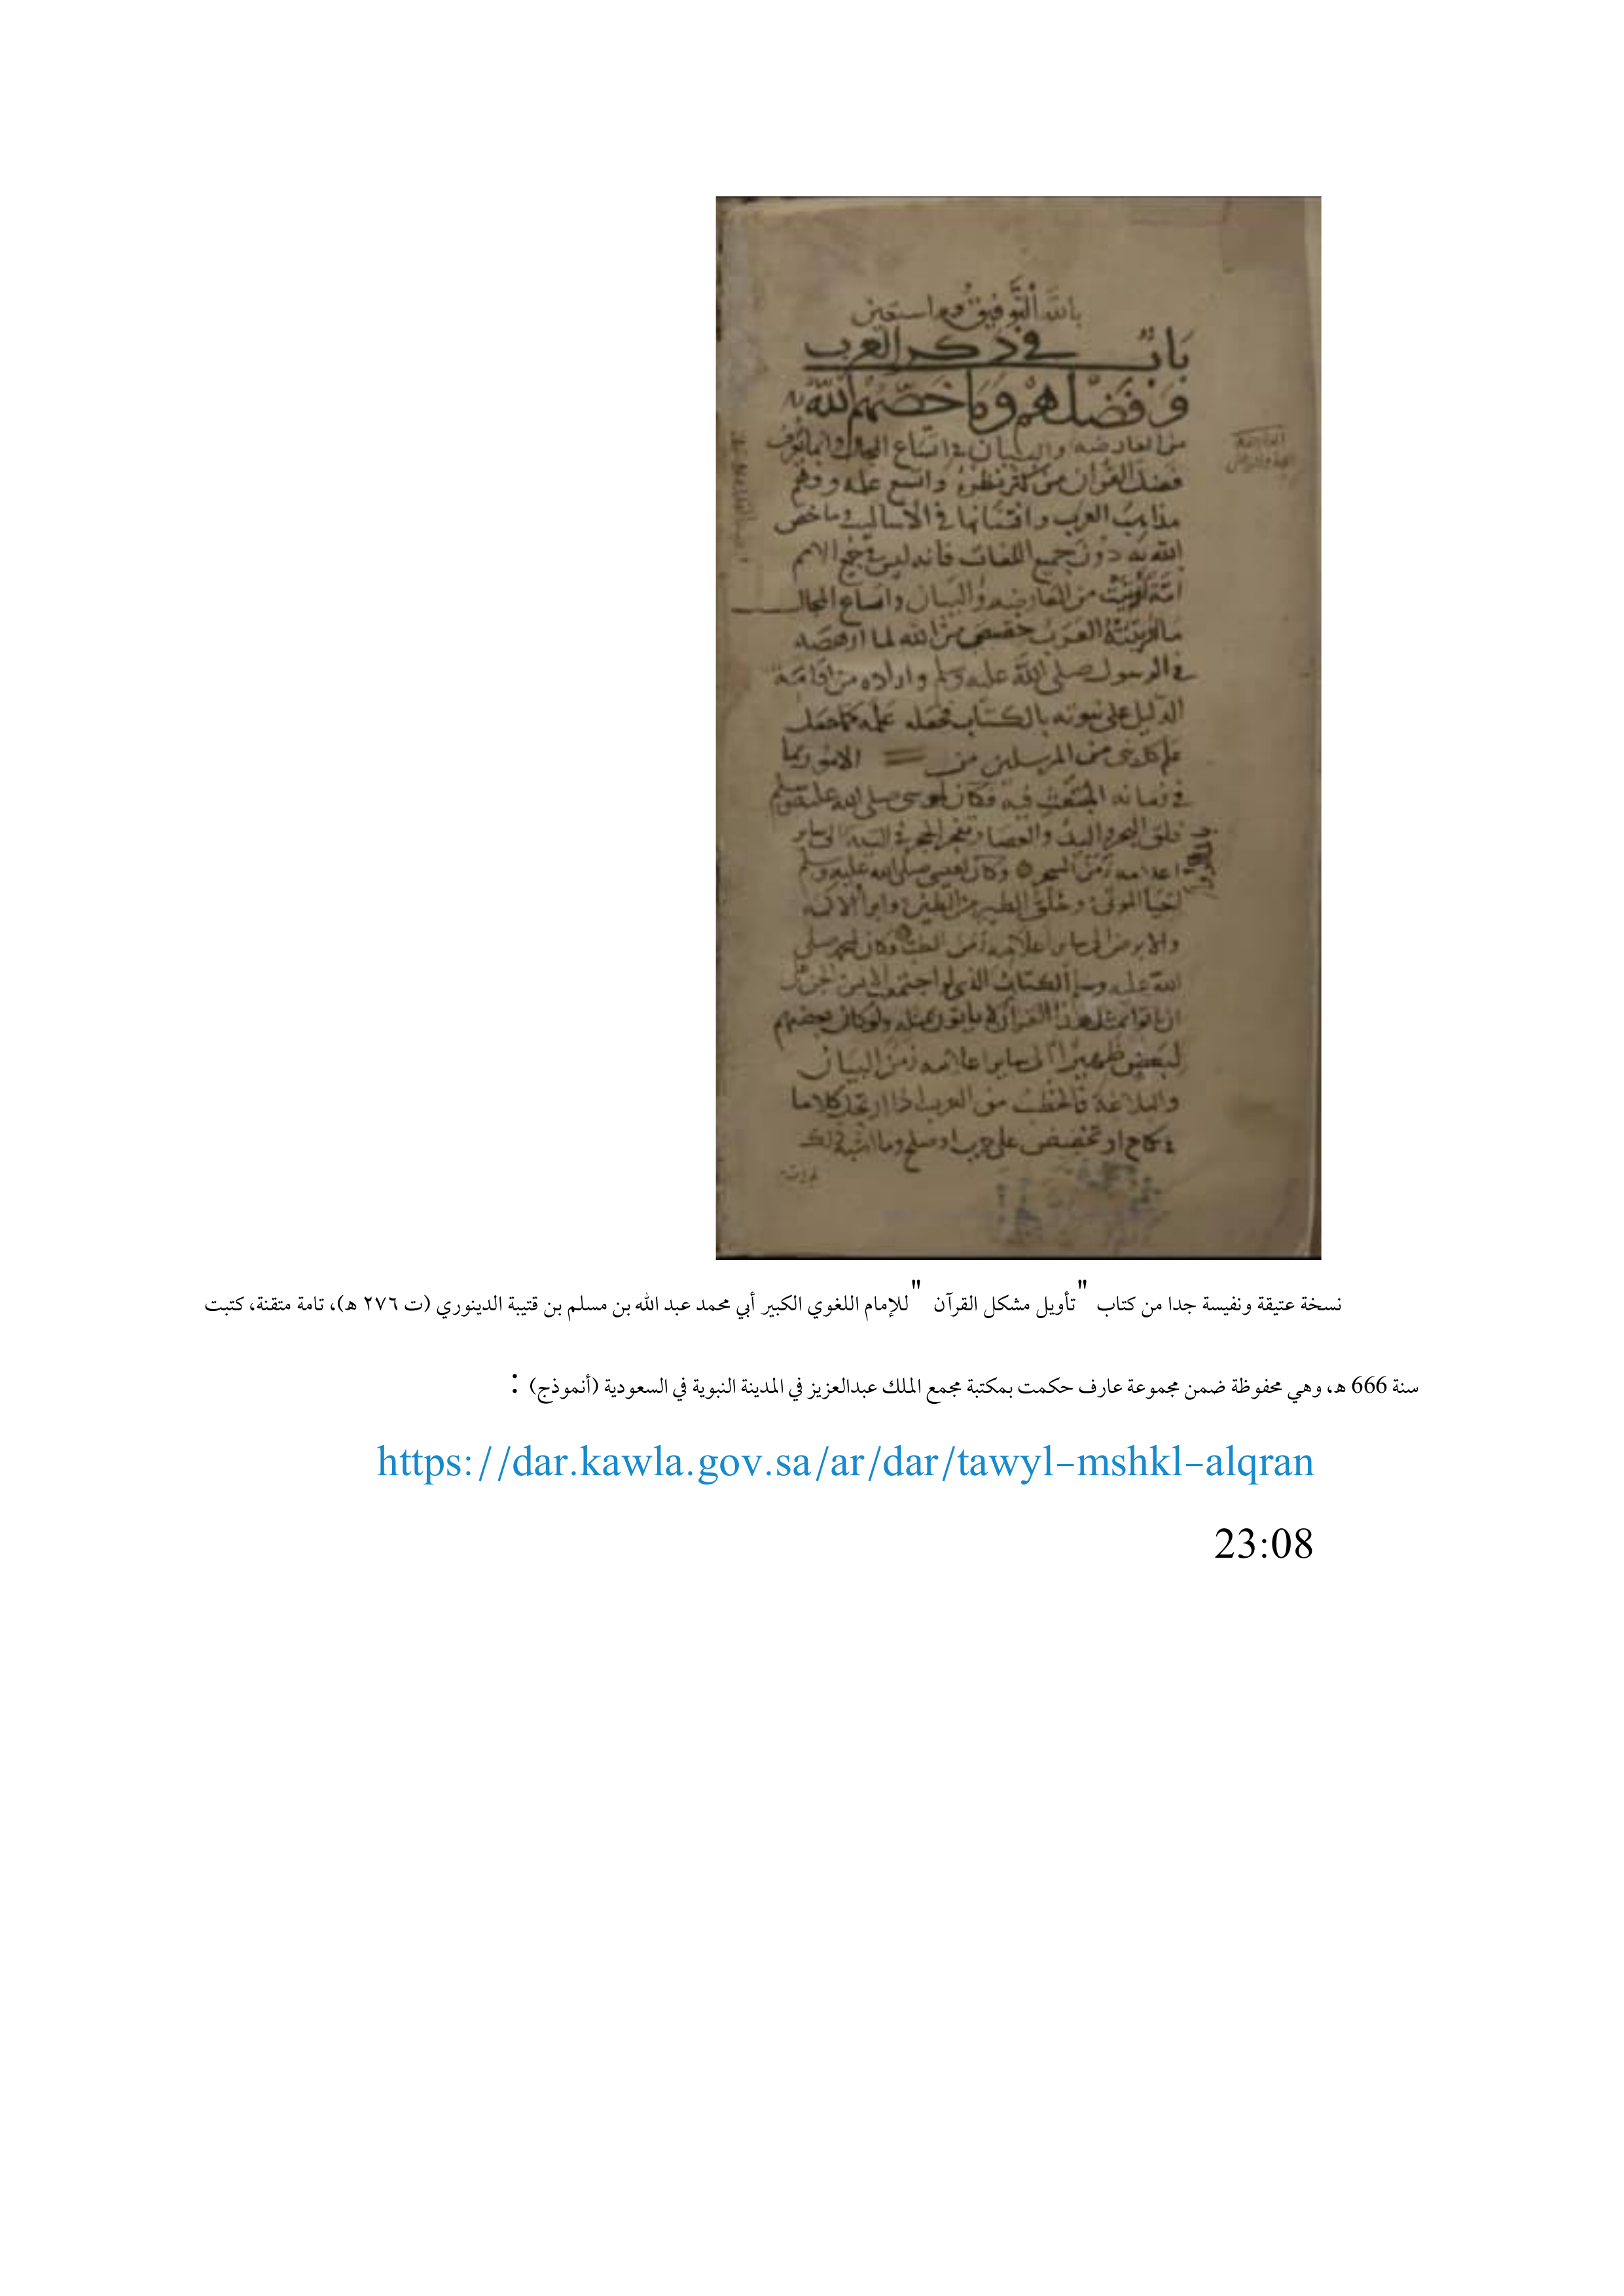 بالله التوفيق وبه استعين
باب في ذكر العرب
وفضلهم وما خصهم الله به
من العارضة والبيان في اتساع المجال وانما يعرف
فضل القران من كثر نظره واتسع علمه وفهم
مذاهب العرب وافتنانها في الاساليب وما خص
الله به دون جميع اللغات فانه ليس في جميع الامم
امة اوتيت من العارضة والبيان واتساع المجال
ما اوتيته العرب خصيصى من الله لما ارهصه
في الرسول صلى الله عليه وسلم واراده من اقامة
الدليل على نبوته بالكتاب فجعله علمه كما جعل
علم كل نبي من المرسلين من الامور بما
في زمانه المبتعث فيه فكان لموسى صلى الله عليه وسلم
فلق البحر واليد والعصا وتفجر الحجر في التيه الى ساير
اعلامه زمن السحر وكان لعيسى صلى الله عليه وسلم
احيا الموتى وخلق الطير من الطين وابرا الاكمه
والابرص الى ساير اعلامه زمن الطب وكان لمحمد صلى
الله عليه وسلم الكتاب الذي لو اجتمعت الانس والجن على
ان ياتوا بمثل هذا القران لا ياتون بمثله ولو كان بعضهم
لبعض ظهيرا الى ساير اعلامه زمن البيان
والبلاغة فالخطيب من العرب اذا ارتجل كلاما
في نكاح او تحضيض على حرب او صلح وما اشبه ذلك
نسخة عتيقة ونفيسة جدا من كتاب "تأويل مشكل القرآن" للإمام اللغوي الكبير أبي محمد عبد الله بن مسلم بن قتيبة الدينوري (ت ٢٧٦ ه)، تامة متقنة، كتبت
سنة 666 ه، وهي محفوظة ضمن مجموعة عارف حكمت بمكتبة مجمع الملك عبدالعزيز في المدينة النبوية في السعودية (أنموذج) :
https://dar.kawla.gov.sa/ar/dar/tawyl-mshkl-alqran
23:08